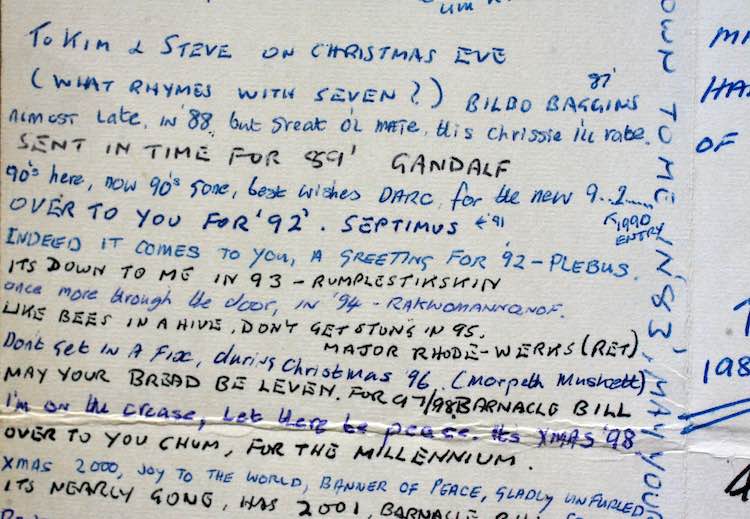 um
To KIM & STEVE ON CHRISTMAS EVE
(WHAT RHYMES WITH SEVEN?) BILBO BAGGINS 87'
Almost Late, in '88, but Great ol mate, this chrissie i'll rate.
SENT IN TIME FOR 89' GANDALF
90's here, now 90's gone, best wishes DARC, for the new 9..1......
1990 ENTRY
OVER TO YOU FOR '92'. SEPTIMUS ← '91
INDEED IT COMES TO YOU, A GREETING FOR '92 - PLEBUS.
ITS DOWN TO ME IN 93 - RUMPLESTIKSKIN
once more through the door, in '94 - RAKWOMANNONOF.
LIKE BEES IN A HIVE, DON'T GET STUNG IN 95.
MAJOR RHODE-WERKS (RET)
Dont get IN A Fix, during Christmas '96, (Morpeth Muskett)
MAY YOUR BREAD BE LEVEN. FOR 97/98 BARNACLE BILL
I'm on the crease, Let there be peace. It's XMAS '98
OVER TO YOU CHUM, FOR THE MILLENNIUM.
XMAS 2000, JOY TO THE WORLD, BANNER OF PEACE, GLADLY UNFURLED
ITS NEARLY GONE, HAS 2001, BARNACLE
OWN TO ME IN '83', MAY YOUR
MI
HA
OF
198
4